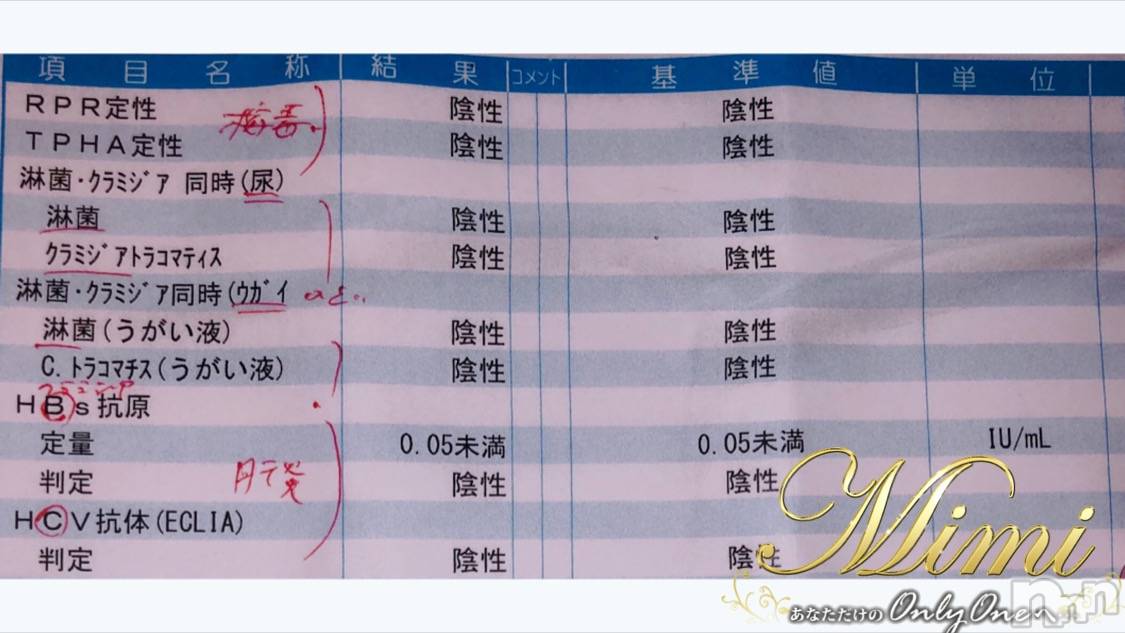 項目名称 結果 コメント 基準値 単位
RPR定性 陰性 陰性
梅毒
TPHA定性 陰性 陰性
淋菌・クラミジア 同時(尿)
淋菌 陰性 陰性
クラミジアトラコマティス 陰性 陰性
淋菌・クラミジア同時(ウガイ のど
淋菌(うがい液) 陰性 陰性
C.トラコマチス(うがい液) 陰性 陰性
クラミジア
HBs抗原
定量 0.05未満 0.05未満 IU/mL
判定 陰性 陰性
肝炎
HCV抗体(ECLIA)
判定 陰性 陰性
Mimi
あなただけのOnlyOneへ